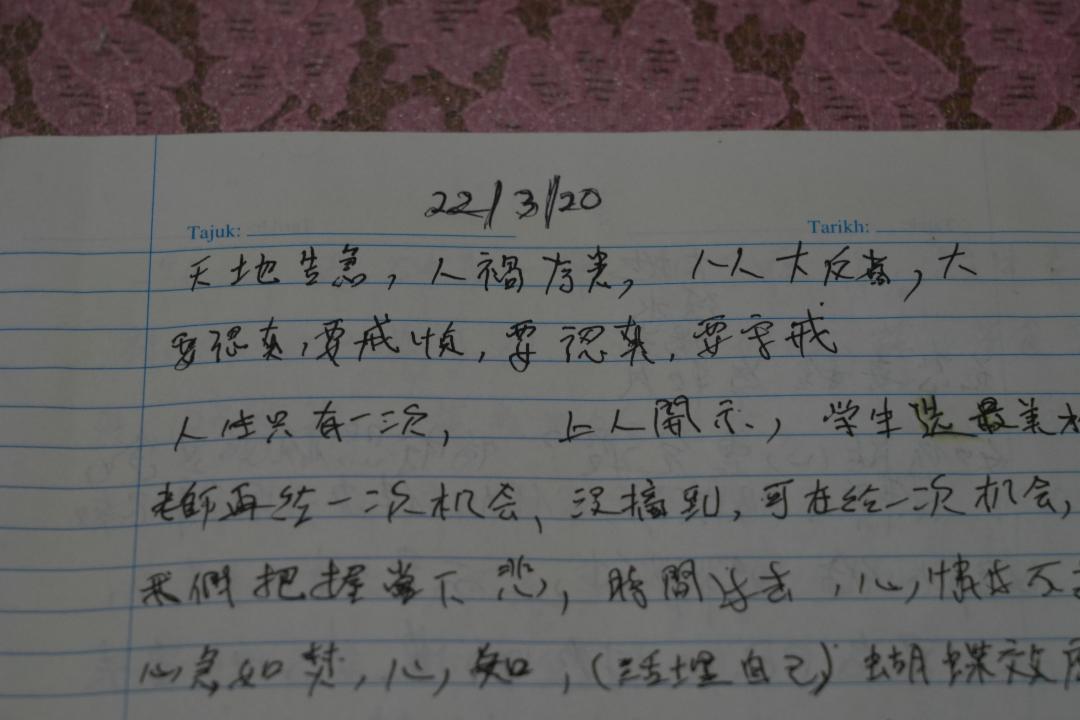 22/3/20
Tajuk: Tarikh:
天地告急，人禍方光，人人大反省，大
要認真，要戒慎，要認真，要守戒
人生只有一次， 上人開示，学生选最美
老師再给一次机会，没摘到，可在给一次机会，
我們把握當下 悲，時間过去，心，情
心急如焚，心，如，（活埋自己）蝴蝶效应